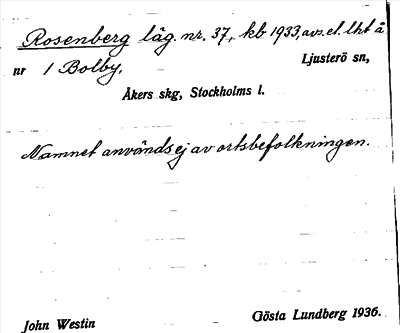 Rosenberg låg. nr. 37, kb 1933, avs. el. lht å
nr 1 Bolby,
Ljusterö sn,
Åkers skg, Stockholms l.
Namnet användsej av ortsbefolkningen.
John Westin
Gösta Lundberg 1936.